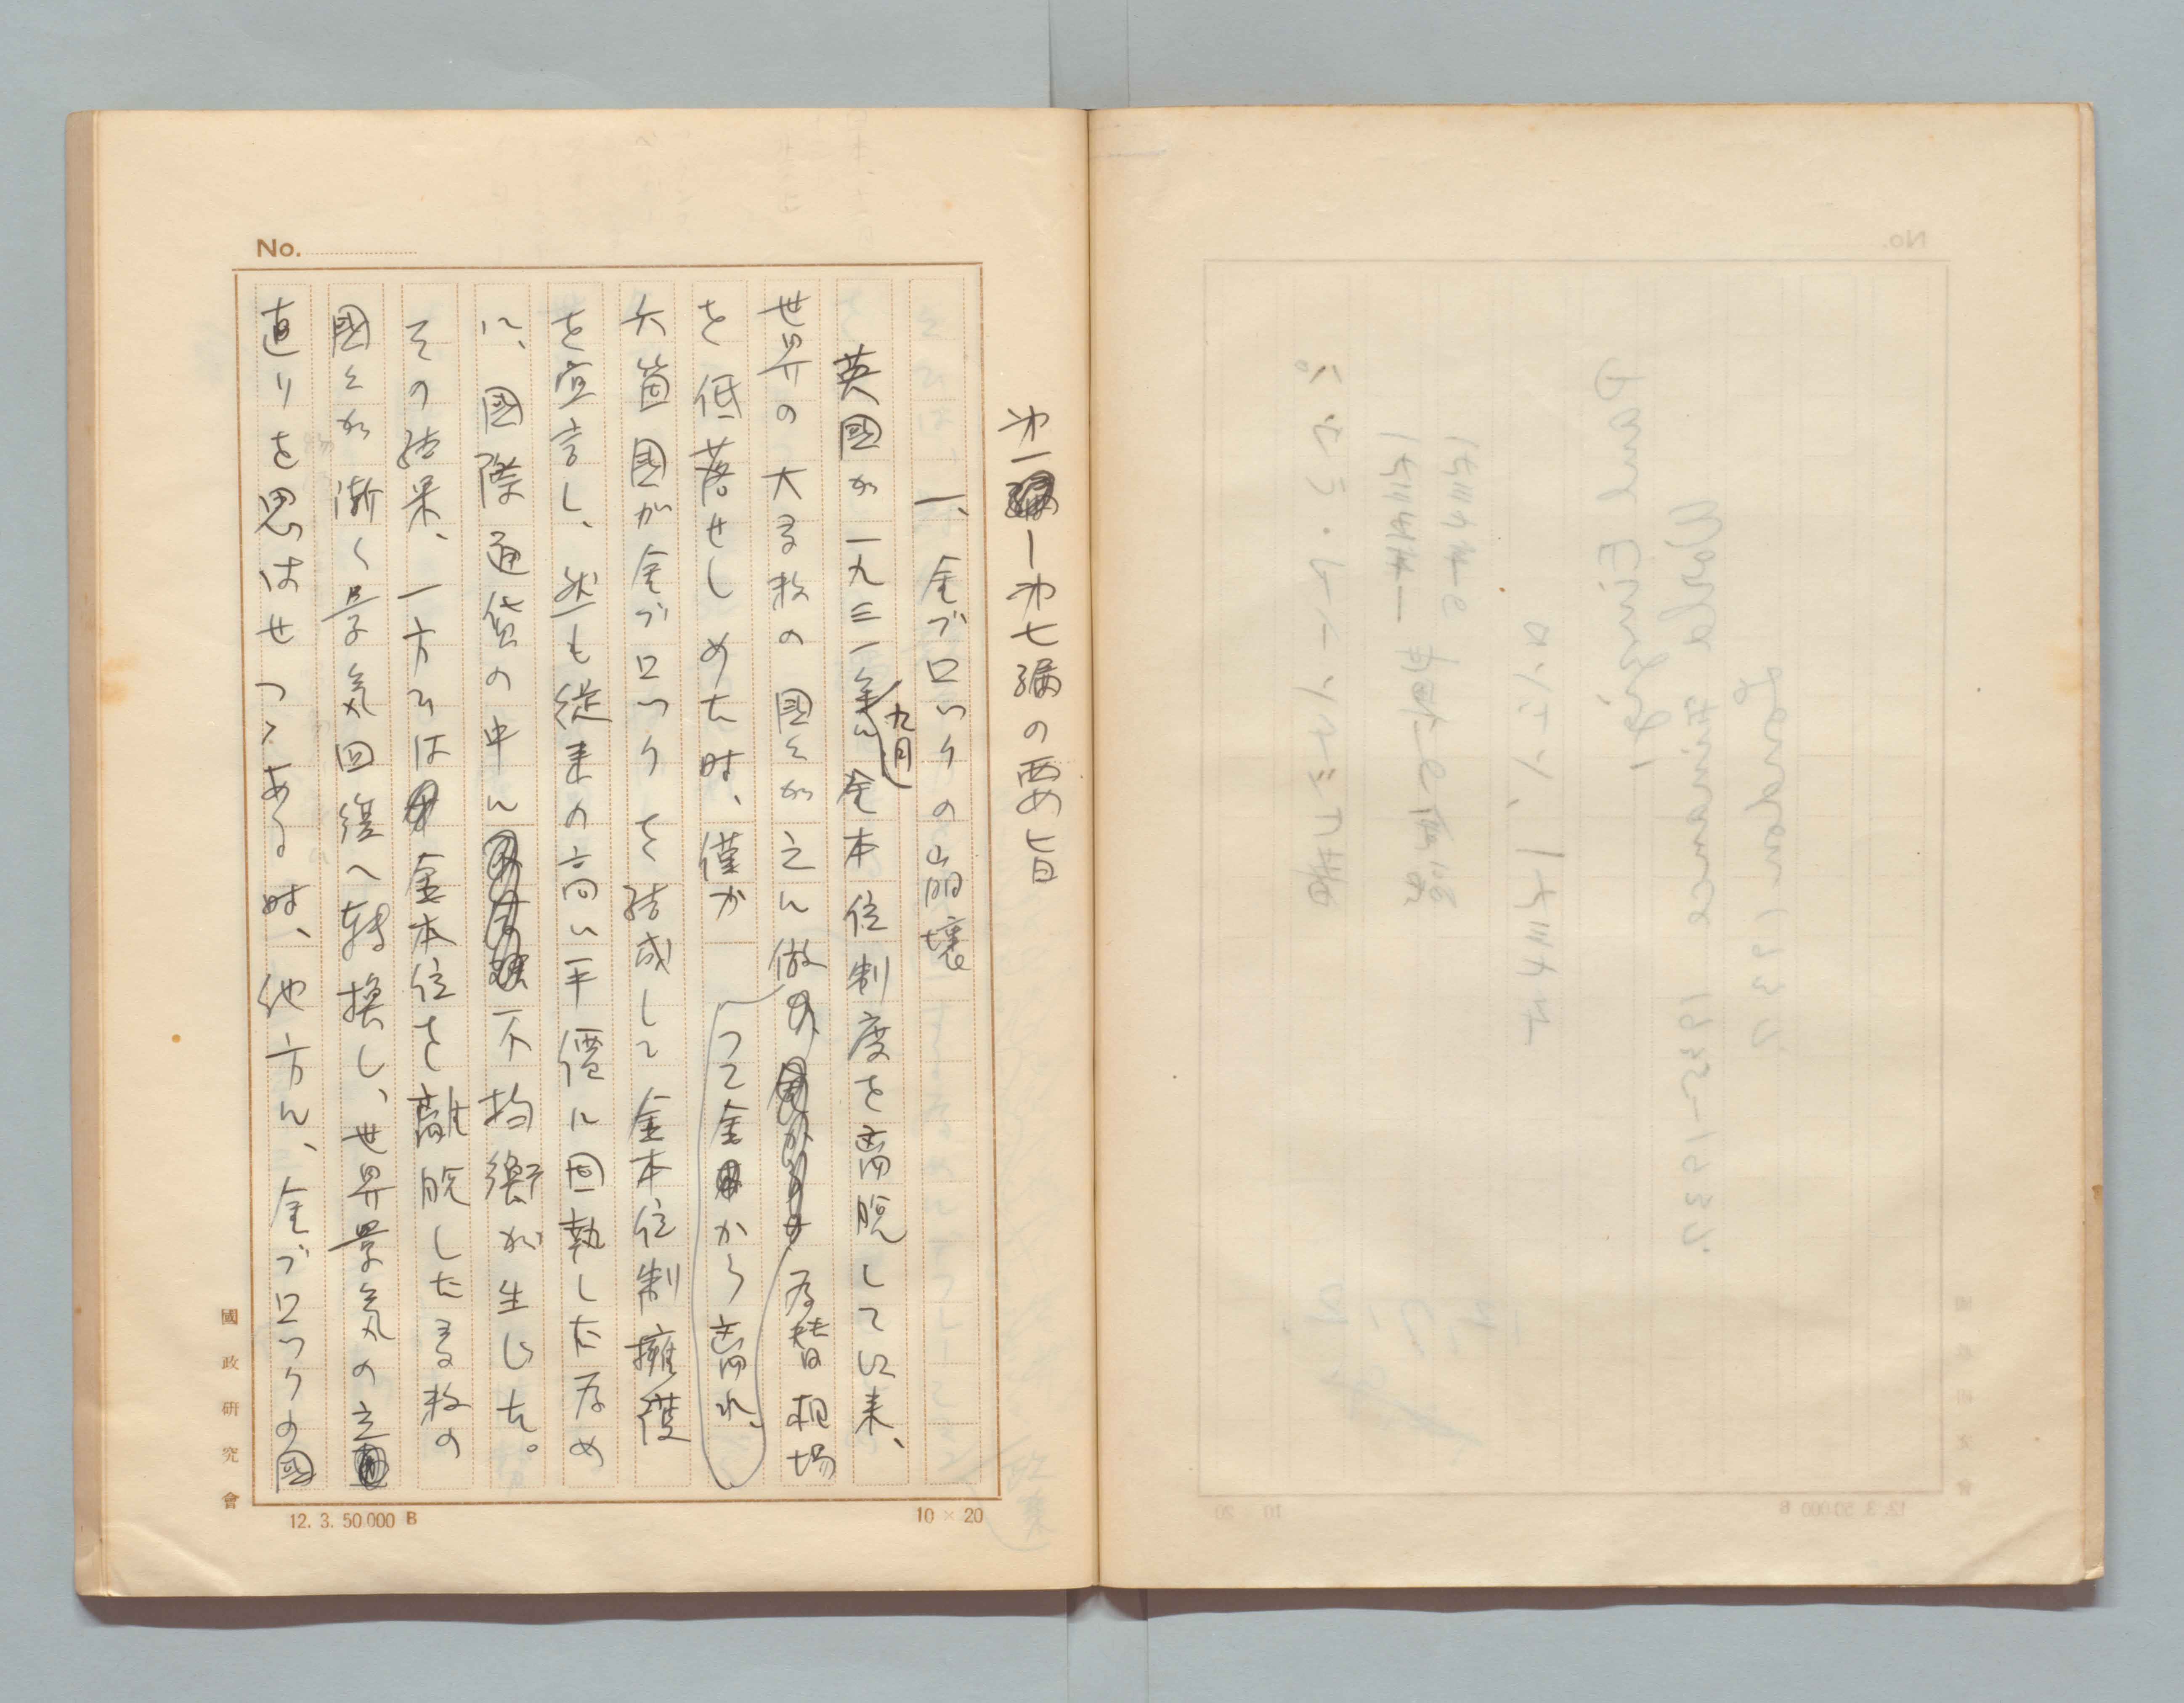 第一―第七編の要旨
一、金ブロックの崩壊
英國が一九三一年九月金本位制度を离脱して以来、
世界の大多数の國々が之に倣つて金から离れ、為替相場
を低落せしめた時、僅か
六箇國が金ブロックを結成して金本位制擁護
を宣言し、然も従来の高い平價に固執したため
に、國際通貨の中に不均衡が生じた。
その結果、一方では金本位を離脱した多数の
國々が漸く景気回復へ転換し、世界景気の立
直りを思はせつゝある時、他方に、金ブロックの國
No.
國政研究會
12. 3. 50.000 B
10 × 20